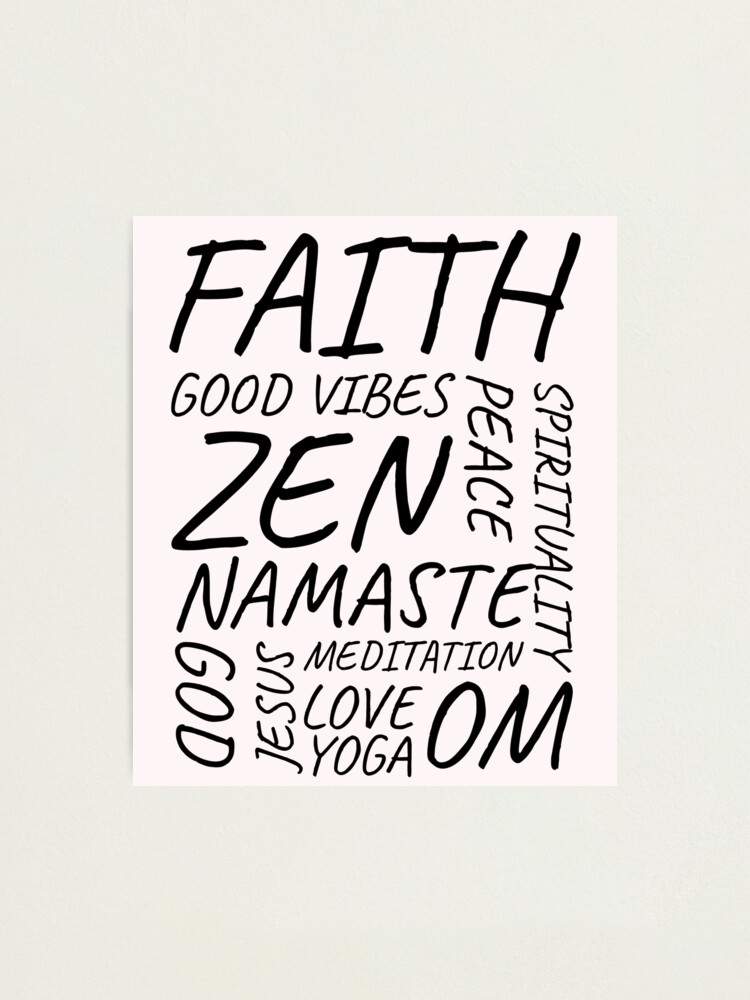 FAITH
GOOD VIBES
PEACE
SPIRITUALITY
ZEN
NAMASTE
GOD
JESUS
MEDITATION
LOVE
YOGA
OM